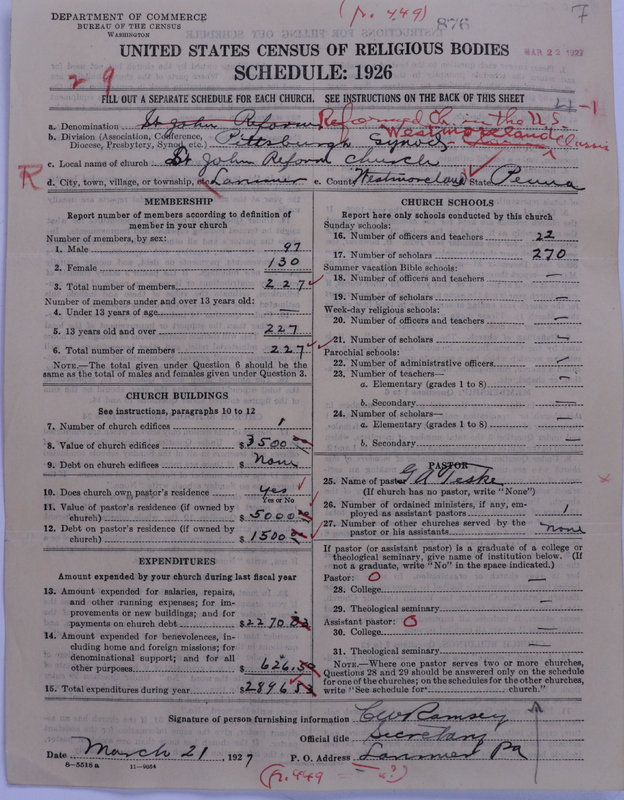 DEPARTMENT OF COMMERCE
BUREAU OF THE CENSUS
WASHINGTON
(p. 449)
876
7
UNITED STATES CENSUS OF RELIGIOUS BODIES
MAR 22 1927
SCHEDULE: 1926
2 9
FILL OUT A SEPARATE SCHEDULE FOR EACH CHURCH. SEE INSTRUCTIONS ON THE BACK OF THIS SHEET
-1
a. Denomination St John Reform Reformed Ch. in the U.S.
b. Division (Association, Conference, Diocese, Presbytery, Synod, etc.) Pittsburgh Synod - Westmoreland Classis
c. Local name of church St John Reform Church
R d. City, town, village, or township, etc. Larimer e. County Westmoreland State Penna
MEMBERSHIP
Report number of members according to definition of
member in your church
Number of members, by sex:
1. Male 97
2. Female 130
3. Total number of members 227
Number of members under and over 13 years old:
4. Under 13 years of age —
5. 13 years old and over 227
6. Total number of members 227
NOTE.—The total given under Question 6 should be
same as the total of males and females given under Question 3.
CHURCH BUILDINGS
See instructions, paragraphs 10 to 12
7. Number of church edifices 1
8. Value of church edifices $3500
9. Debt on church edifices $ None
10. Does church own pastor's residence yes
Yes or No
11. Value of pastor's residence (if owned by
church) $5000
12. Debt on pastor's residence (if owned by
church) $1500
EXPENDITURES
Amount expended by your church during last fiscal year
13. Amount expended for salaries, repairs,
and other running expenses; for im-
provements or new buildings; and for
payments on church debt $2270.03
14. Amount expended for benevolences, in-
cluding home and foreign missions; for
denominational support; and for all
other purposes $626.50
15. Total expenditures during year $2896.53
CHURCH SCHOOLS
Report here only schools conducted by this church
Sunday schools:
16. Number of officers and teachers 22
17. Number of scholars 270
Summer vacation Bible schools:
18. Number of officers and teachers —
19. Number of scholars —
Week-day religious schools:
20. Number of officers and teachers —
21. Number of scholars —
Parochial schools:
22. Number of administrative officers —
23. Number of teachers—
a. Elementary (grades 1 to 8) —
b. Secondary —
24. Number of scholars—
a. Elementary (grades 1 to 8) —
b. Secondary —
PASTOR
25. Name of pastor G A Teske
(If church has no pastor, write "None")
26. Number of ordained ministers, if any, em-
ployed as assistant pastors 1
27. Number of other churches served by the
pastor or his assistants none
If pastor (or assistant pastor) is a graduate of a college or
theological seminary, give name of institution below. (If
not a graduate, write "No" in the space indicated.)
Pastor: O
28. College —
29. Theological seminary —
Assistant pastor: O
30. College —
31. Theological seminary —
NOTE.—Where one pastor serves two or more churches,
Questions 28 and 29 should be answered only on the schedule
for one of the churches; on the schedules for the other churches,
write "See schedule for church."
Signature of person furnishing information C W Ramsey
Official title Secretary
Date March 21, 1927 P. O. Address Larimer Pa
8-5518a 11-9054
(p. 449 = ?)